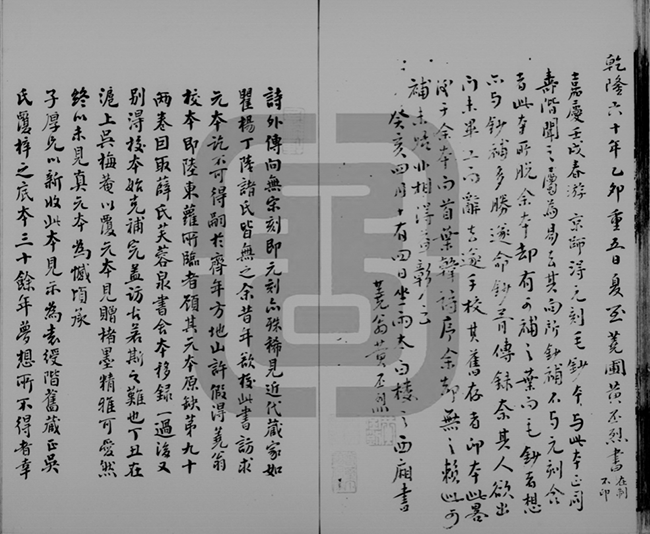 乾隆六十年乙卯重五日夏至蕘圃黃丕烈書在制不印
嘉慶壬戌春游京師得元刻毛鈔本與此本正同
壽階聞之屬為易之其向所鈔補不與元刻合
者此本所脫余本却有可補之葉而毛鈔者想
亦與鈔補多勝遂命鈔胥傳錄奈其人欲出
而未畢工而辭去遂手校其舊存者即本此畧
没于余本向首葉韓詩序余却無之賴此可
補未嘗非相得益彰已
癸亥四月十有四日坐雨太白樓之西廂書
蕘翁黃丕烈
詩外傳向無宋刻即元刻亦殊稀見近代藏家如
瞿楊丁陸諸氏皆無之余昔年欲校此書訪求
元本訖不可得嗣於齊年方地山許假得蕘翁
校本即陸東蘿所臨者顧其元本原缺第九十
兩卷因取薛氏芙蓉泉書舍本移錄一過後又
別得校本始克補完蓋訪古若斯之難也丁丑在
滬上吳梅菴以覆元本見贈楮墨精雅可愛然
終以未見真元本為憾頃承
子厚兄以新收此本見示為袁綬階舊藏正吳
氏覆梓之底本三十餘年夢想所不得者幸